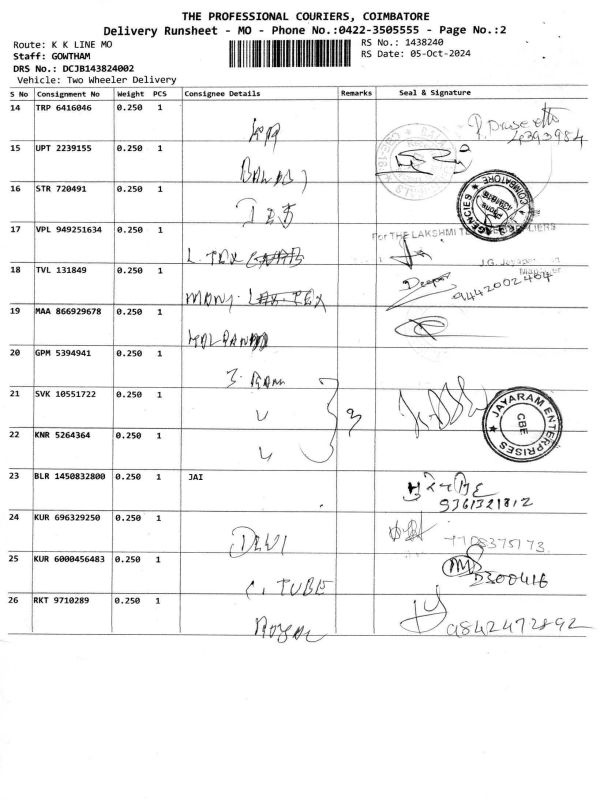 THE PROFESSIONAL COURIERS, COIMBATORE
Delivery Runsheet - MO - Phone No.:0422-3505555 - Page No.:2
Route: K K LINE MO
RS No.: 1438240
Staff: GOWTHAM
RS Date: 05-Oct-2024
DRS No.: DCJB143824002
Vehicle: Two Wheeler Delivery
S No Consignment No Weight PCS Consignee Details Remarks Seal & Signature
14 TRP 6416046 0.250 1
15 UPT 2239155 0.250 1
16 STR 720491 0.250 1
COIMBATORE
AGENCIES
Phone
17 VPL 949251634 0.250 1
For THE LAKSHMI
L. TEX
18 TVL 131849 0.250 1
Deepa
9442002464
MANJ. TEX
19 MAA 866929678 0.250 1
20 GPM 5394941 0.250 1
J. RAM
21 SVK 10551722 0.250 1
3
JAYARAM ENTERPRISES
CBE
22 KNR 5264364 0.250 1
23 BLR 1450832800 0.250 1 JAI
9361321812
24 KUR 696329250 0.250 1
7708375173
DEVI
25 KUR 6000456483 0.250 1
2300416
C. TUBE
26 RKT 9710289 0.250 1
9842472892
ROYAL